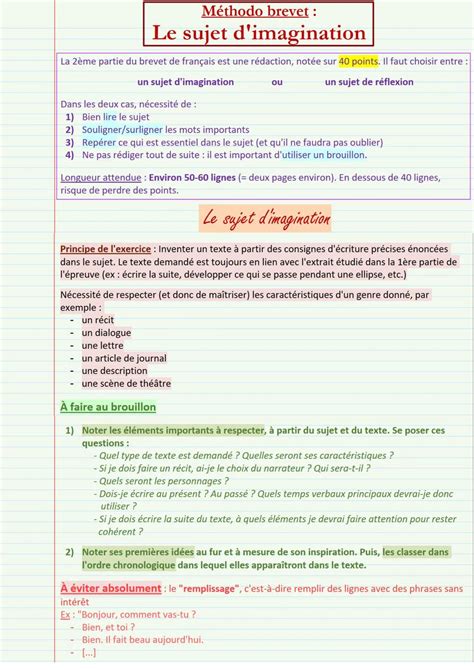 Méthodo brevet :
Le sujet d'imagination
La 2ème partie du brevet de français est une rédaction, notée sur 40 points. Il faut choisir entre :
un sujet d'imagination ou un sujet de réflexion
Dans les deux cas, nécessité de :
1) Bien lire le sujet
2) Souligner/surligner les mots importants
3) Repérer ce qui est essentiel dans le sujet (et qu'il ne faudra pas oublier)
4) Ne pas rédiger tout de suite : il est important d'utiliser un brouillon.
Longueur attendue : Environ 50-60 lignes (= deux pages environ). En dessous de 40 lignes,
risque de perdre des points.
Le sujet d'imagination
Principe de l'exercice : Inventer un texte à partir des consignes d'écriture précises énoncées
dans le sujet. Le texte demandé est toujours en lien avec l'extrait étudié dans la 1ère partie de
l'épreuve (ex : écrire la suite, développer ce qui se passe pendant une ellipse, etc.)
Nécessité de respecter (et donc de maîtriser) les caractéristiques d'un genre donné, par
exemple :
- un récit
- un dialogue
- une lettre
- un article de journal
- une description
- une scène de théâtre
À faire au brouillon
1) Noter les éléments importants à respecter, à partir du sujet et du texte. Se poser ces
questions :
- Quel type de texte est demandé ? Quelles seront ses caractéristiques ?
- Si je dois faire un récit, ai-je le choix du narrateur ? Qui sera-t-il ?
- Quels seront les personnages ?
- Dois-je écrire au présent ? Au passé ? Quels temps verbaux principaux devrai-je donc
utiliser ?
- Si je dois écrire la suite du texte, à quels éléments je devrai faire attention pour rester
cohérent ?
2) Noter ses premières idées au fur et à mesure de son inspiration. Puis, les classer dans
l'ordre chronologique dans lequel elles apparaîtront dans le texte.
À éviter absolument : le "remplissage", c'est-à-dire remplir des lignes avec des phrases sans
intérêt
Ex : "Bonjour, comment vas-tu ?
- Bien, et toi ?
- Bien. Il fait beau aujourd'hui.
- [...]